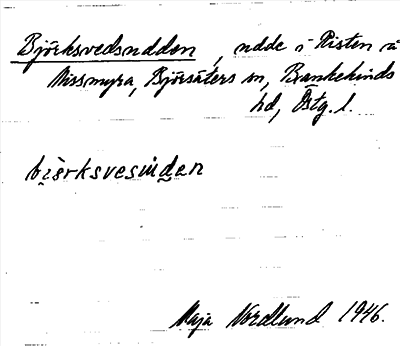 Björksvedsudden, udde i Risten å
Missmyra, Björsäters sn, Bankekinds
hd, Östg. l.
bi̯örksvesùden
Maja Nordlund 1946.